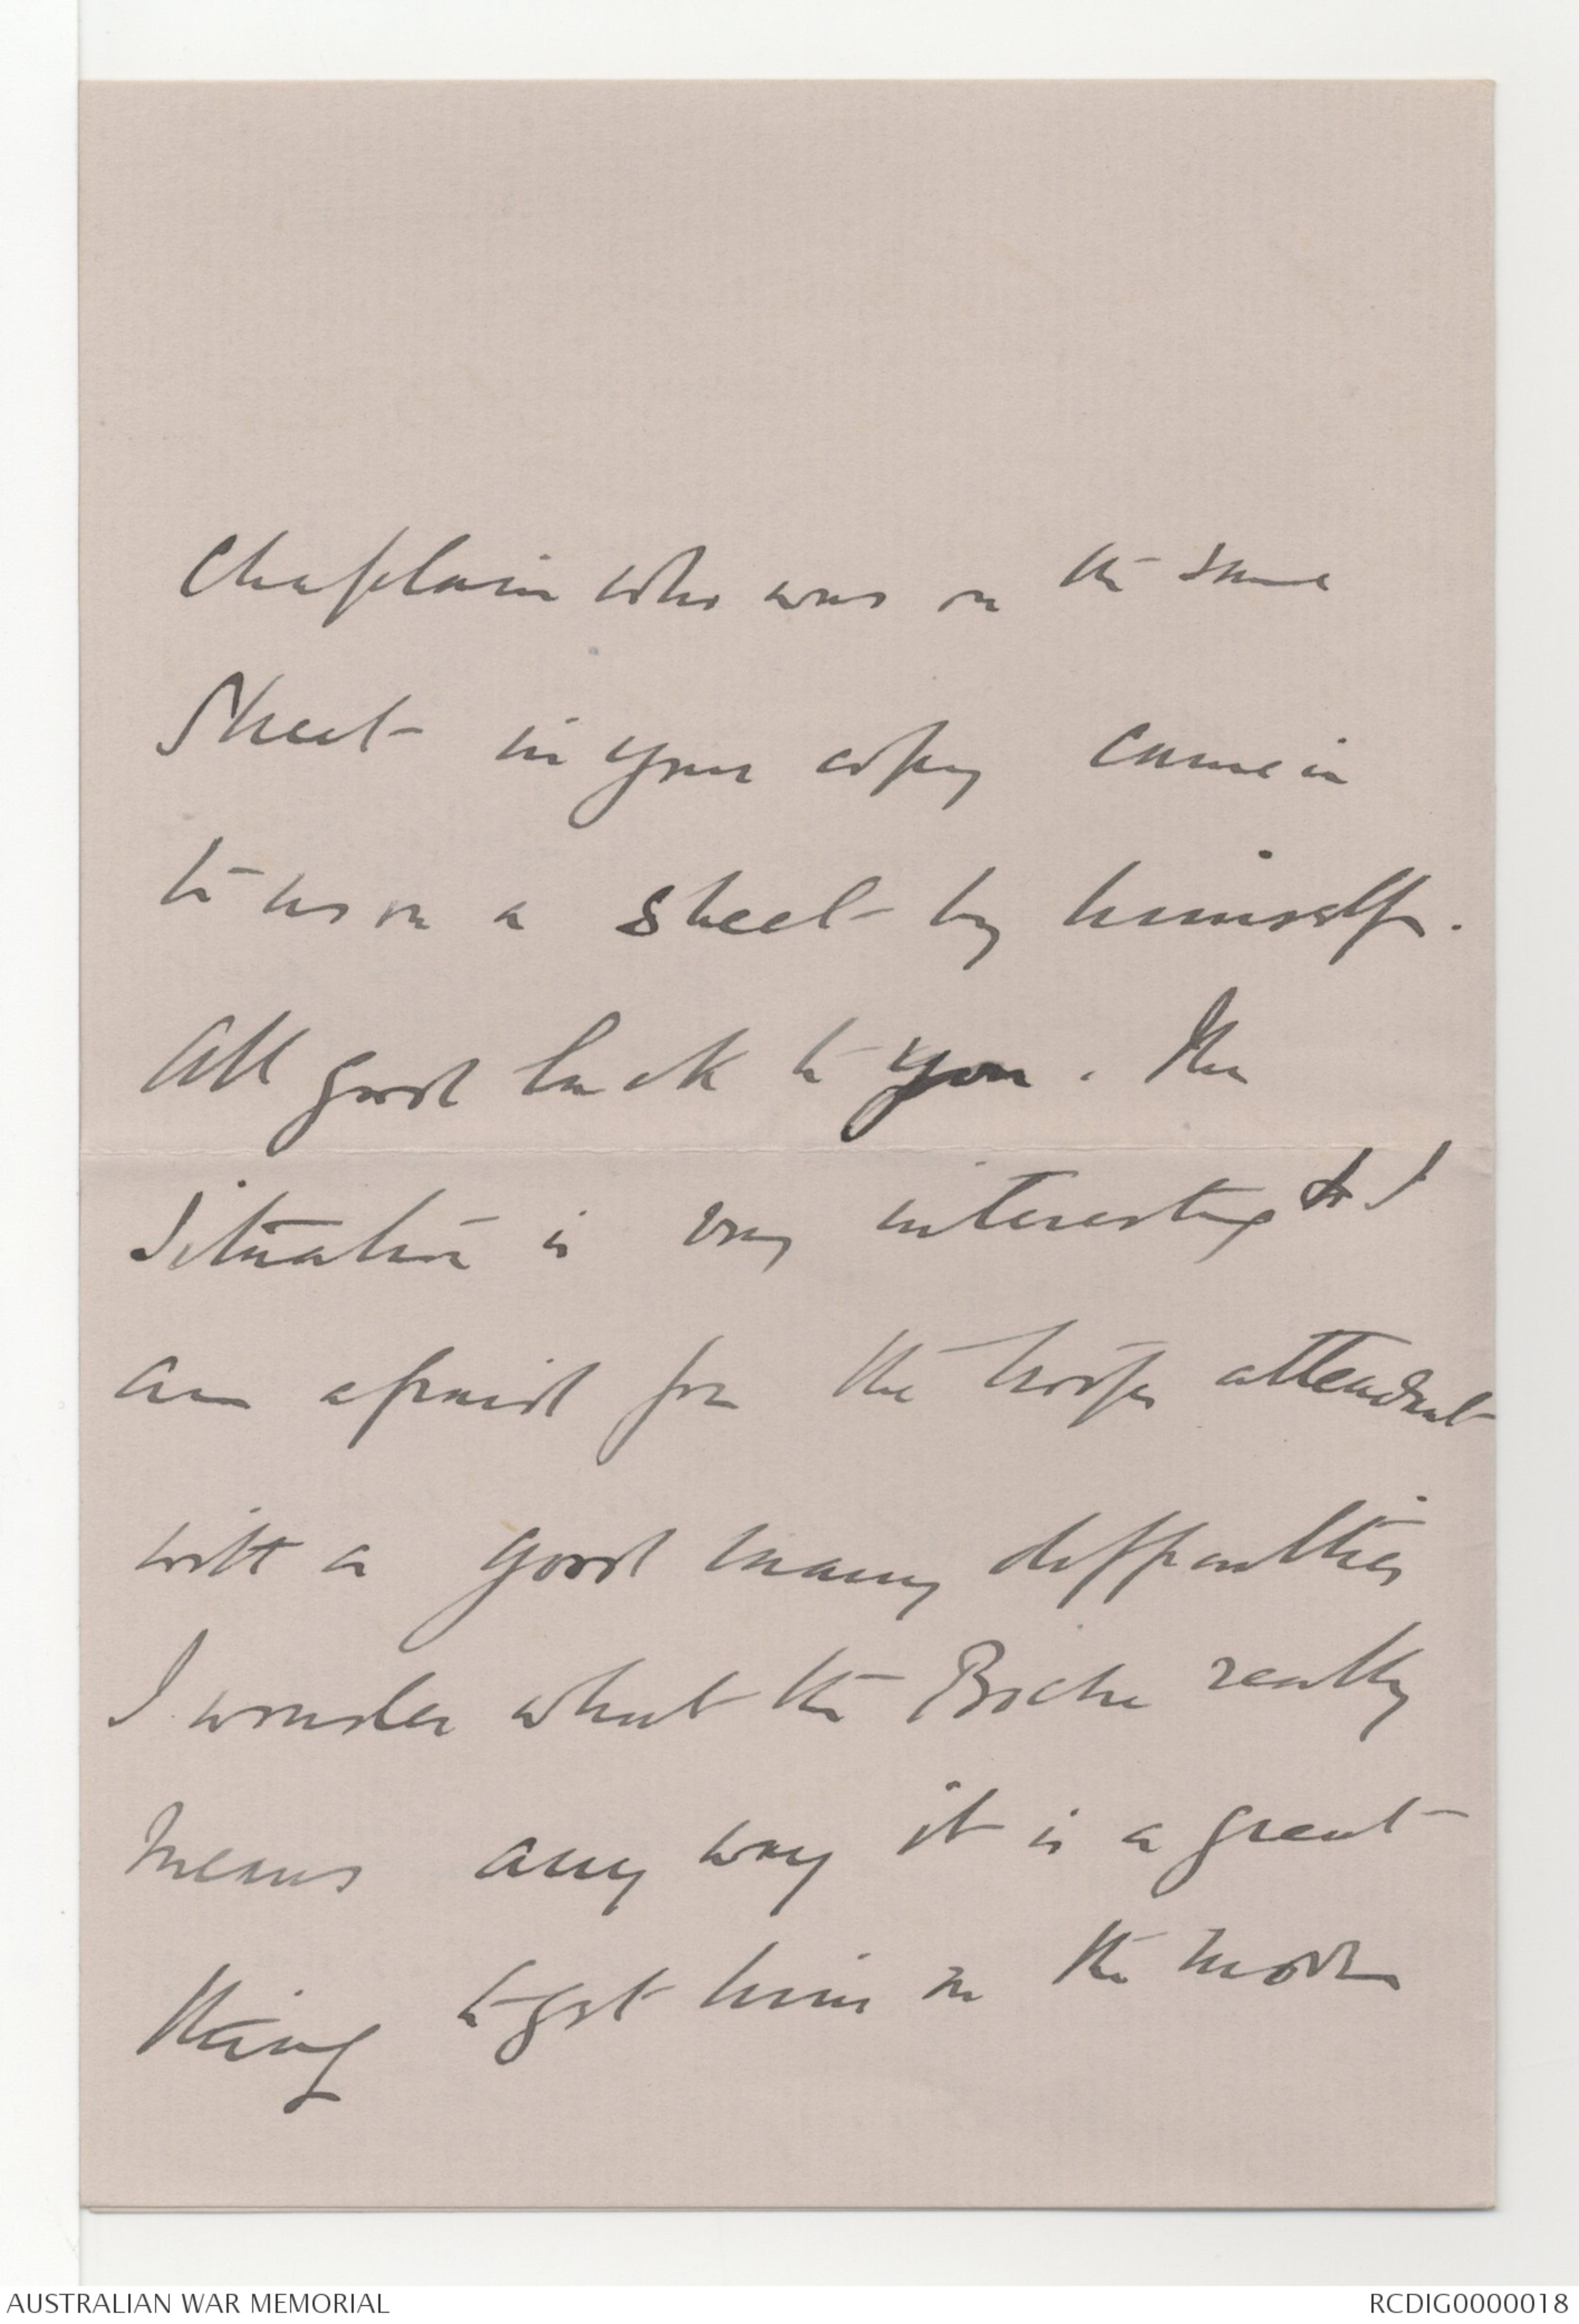 Chaplain who was on the same
Sheet in your copy came in
to us on a sheet by himself.
All good luck to you. The
Situation is very interesting & I
am afraid for the troops attendant
with a good many difficulties
I wonder what the Boche really
means any way it is a great
thing to get him on the move
AUSTRALIAN WAR MEMORIAL
RCDIG0000018